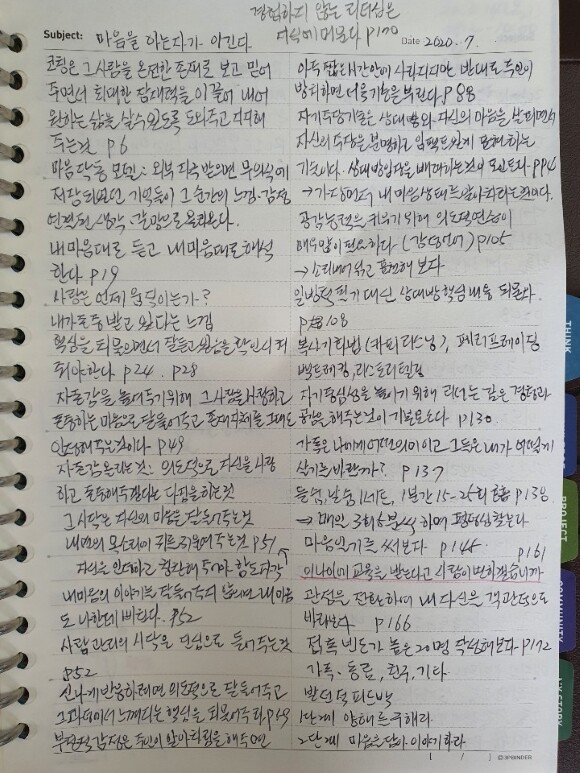 경험하지 않는 리더십은
지식에 머문다 p170
Subject: 마음을 아는자가 이긴다. Date 2020. 7.
코칭은 그 사람을 온전한 존재로 보고 믿어
주면서 최대한 잠재력을 이끌어 내어
원하는 삶을 살수 있도록 도와주고 지지해
주는것 p6
마음 작동 모델 : 외부 자극 받으면 무의식에
저장되었던 기억들이 그 순간의 느낌·감정
연관된 생각·갈망으로 올라온다.
내 마음대로 듣고 내 마음대로 해석
한다 p19
사람은 언제 움직이는가?
내가 존중 받고 있다는 느낌
핵심을 되물으면서 잘 듣고 있음을 확인시켜
줘야한다 p24. p28
자존감을 높여주기 위해 그 사람을 사랑하고
존중하는 마음으로 잘 들어주고 존재 자체를 그대로
인정해 주는것이다 p49
자존감 올리는것: 의도적으로 자신을 사랑
하고 존중해주겠다는 다짐을 하는것
그 시작은 자신의 마음을 잘 들어주는것
내면의 목소리에 귀 기울여 주는것 p51
자신을 인정하고 칭찬해 주어야 함도 자각
내 마음의 이야기를 잘 들어주지 않으면 내 마음
도 나한테 삐친다. p52
사람 관리의 시작은 진심으로 들어주는것
p52
신나게 반응하려면 의도적으로 잘 들어주고
그 과정에서 느껴지는 핵심을 되물어 주라 p69
부정적 감정은 주인이 알아차림을 해주면
아주 짧은 시간안에 사라지지만 반대로 주인이
방치하면 더욱 기승을 부린다 p88
자기주장 기술은 상대방의 자신의 마음을 살피면서
자신의 주장을 분명하고 임팩트있게 표현하는
기술이다. 상대방 입장을 배려하는것이 포인트다 p94
→ 가장 먼저 내 마음상태를 알아차리라는것이다.
공감능력을 키우기 위해 의도적 연습이
매우 많이 필요하다 (감정언어) p105
→ 소리내어 읽고 표현해 보다
일방적 듣기 대신 상대방 핵심 내용 되묻다.
p108
복사기화법 (카피 리스닝), 페러프레이징
백트레킹, 리스토리텔링
자기통찰성을 높이기 위해 리서는 깊은 경청과
공감을 해주는것이 기본토다 p130
가족은 나에게 어떤 의미이고 그들은 내가 어떻게
살기를 바랄까? p137
들숨, 날숨 1세트, 1분간 15-25회 호흡 p138
→ 매일 3회 5분씩 하며 평정심 찾는다
마음일기를 써보다 p145. p161
이 나이에 교육을 받는다고 사람이 변하겠습니까
관점을 전환하여 내 자신을 객관적으로
바라보다 p166
접촉 빈도가 높은 20명 작성해보다 p172
가족·동료, 친구, 기타
발전적 피드백
1단계 양해를 구해라
2단계 마음을 담아 이야기하라
THINK
PROJECT
COMMUNITY
MY STORY
3PBINDER